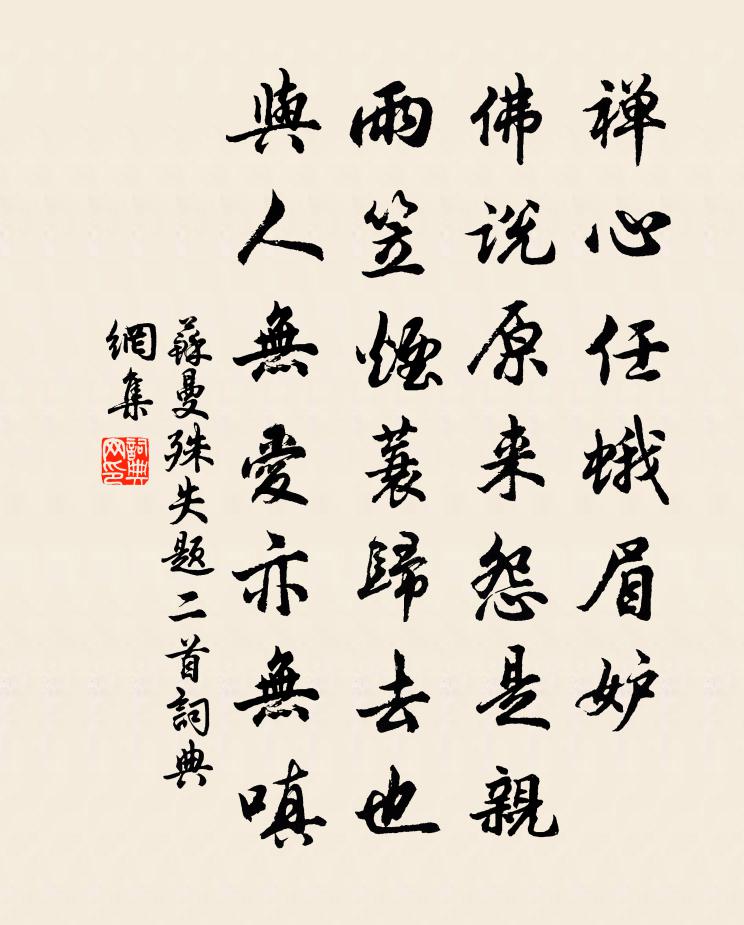 禅心任蛾眉妒
佛説原来怨是親
雨笠煙蓑歸去也
與人無愛亦無嗔
蘇曼殊失题二首詞典
網集
詞典
网印